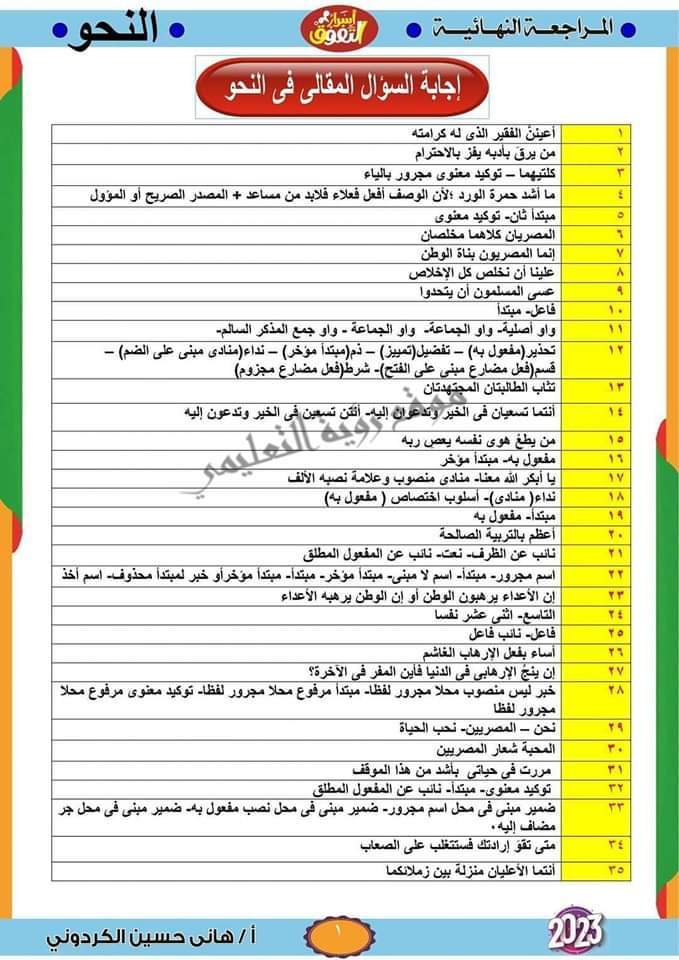 المراجعة النهائية
أسرار التفوق
النحو
إجابة السؤال المقالى فى النحو
١ أعيننَّ الفقير الذى له كرامته
٢ من يرقَ بأدبه يفز بالاحترام
٣ كلتيهما – توكيد معنوى مجرور بالياء
٤ ما أشد حمرة الورد ؛لأن الوصف أفعل فعلاء فلابد من مساعد + المصدر الصريح أو المؤول
٥ مبتدأ ثان- توكيد معنوى
٦ المصريان كلاهما مخلصان
٧ إنما المصريون بناة الوطن
٨ علينا أن نخلص كل الإخلاص
٩ عسى المسلمون أن يتحدوا
١٠ فاعل- مبتدأ
١١ واو أصلية- واو الجماعة- واو الجماعة - واو جمع المذكر السالم-
١٢ تحذير(مفعول به) – تفضيل(تمييز) – ذم(مبتدأ مؤخر) – نداء(منادى مبنى على الضم) –
قسم(فعل مضارع مبنى على الفتح)- شرط(فعل مضارع مجزوم)
١٣ تثاب الطالبتان المجتهدتان
١٤ أنتما تسعيان فى الخير وتدعوان إليه- أنتن تسعين فى الخير وتدعون إليه
١٥ من يطعْ هوى نفسه يعص ربه
١٦ مفعول به- مبتدأ مؤخر
١٧ يا أبكر الله معنا- منادى منصوب وعلامة نصبه الألف
١٨ نداء( منادى)- أسلوب اختصاص ( مفعول به)
١٩ مبتدأ- مفعول به
٢٠ أعظم بالتربية الصالحة
٢١ نائب عن الظرف- نعت- نائب عن المفعول المطلق
٢٢ اسم مجرور- مبتدأ- اسم لا مبنى- مبتدأ مؤخر- مبتدأ- مبتدأ مؤخرأو خبر لمبتدأ محذوف- اسم أخذ
٢٣ إن الأعداء يرهبون الوطن أو إن الوطن يرهبه الأعداء
٢٤ التاسع- اثنى عشر نفسا
٢٥ فاعل- نائب فاعل
٢٦ أساء بفعل الإرهاب الغاشم
٢٧ إن ينجُ الإرهابى فى الدنيا فأين المفر فى الآخرة؟
٢٨ خبر ليس منصوب محلا مجرور لفظا- مبتدأ مرفوع محلا مجرور لفظا- توكيد معنوى مرفوع محلا
مجرور لفظا
٢٩ نحن – المصريين- نحب الحياة
٣٠ المحبة شعار المصريين
٣١ مررت فى حياتى بأشد من هذا الموقف
٣٢ توكيد معنوى- مبتدأ- نائب عن المفعول المطلق
٣٣ ضمير مبنى فى محل اسم مجرور- ضمير مبنى فى محل نصب مفعول به- ضمير مبنى فى محل جر
مضاف إليه٠
٣٤ متى تقوَ إرادتك فستتغلب على الصعاب
٣٥ أنتما الأعليان منزلة بين زملائكما
موقع رؤية التعليمي
2023
١
أ/ هانى حسين الكردوني